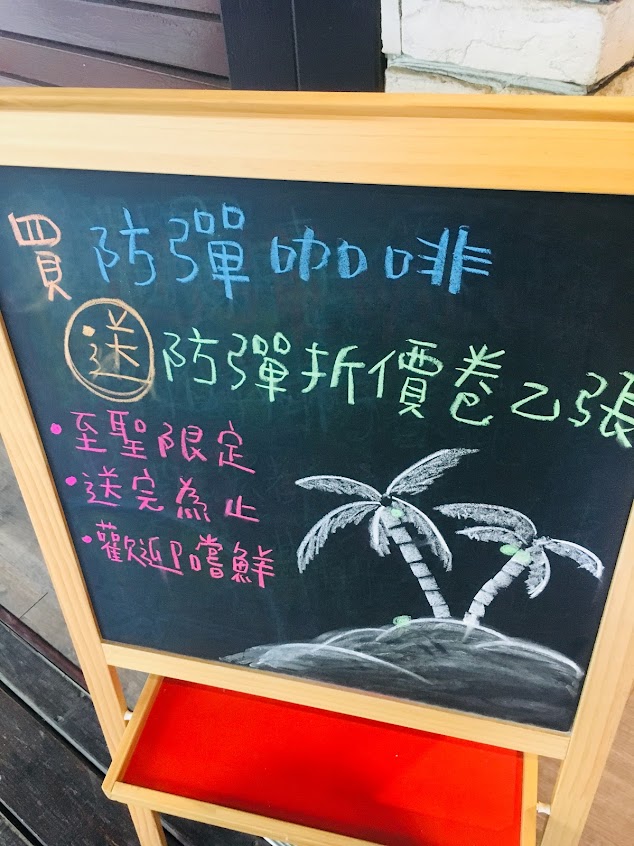 買防彈咖啡
送防彈折價卷乙張
•至聖限定
•送完為止
•歡迎嚐鮮